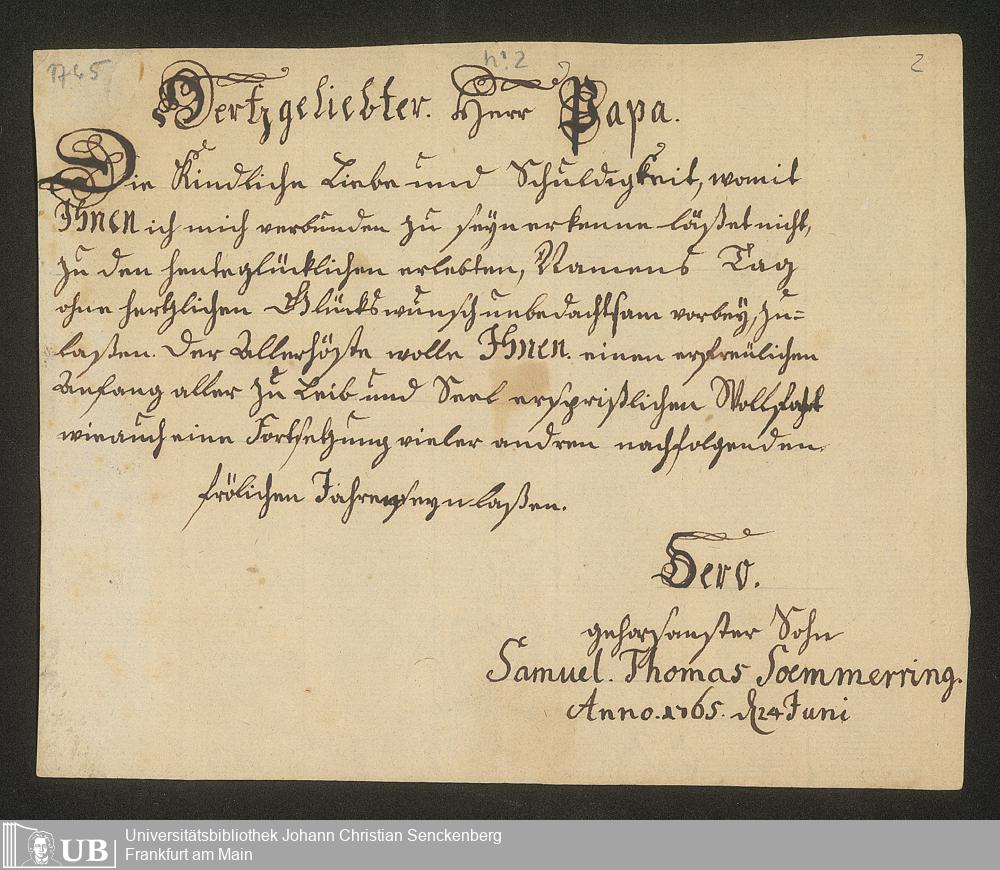 1765 No. 2 2
Hertzgeliebter. Herr Papa.
Die Kindliche Liebe und Schuldigkeit, womit
Ihnen ich mich verbunden zu seyn erkenne läßet nicht,
zu den heute glücklichen erlebten, Namens Tag
ohne hertzlichen Glückswunsch unbedachtsam vorbey, zu=
laßen. Der Allerhöste wolle Ihnen. einen erfreulichen
Anfang aller zu Leib und Seel ersprißlichen Wollfahrt
wie auch eine Fortsetzung vieler andren nachfolgenden.
frölichen Jahren seyn laßen.
Dero.
gehorsamster Sohn
Samuel. Thomas Soemmerring.
Anno. 1765. d 24 Juni
UB Universitätsbibliothek Johann Christian Senckenberg
Frankfurt am Main